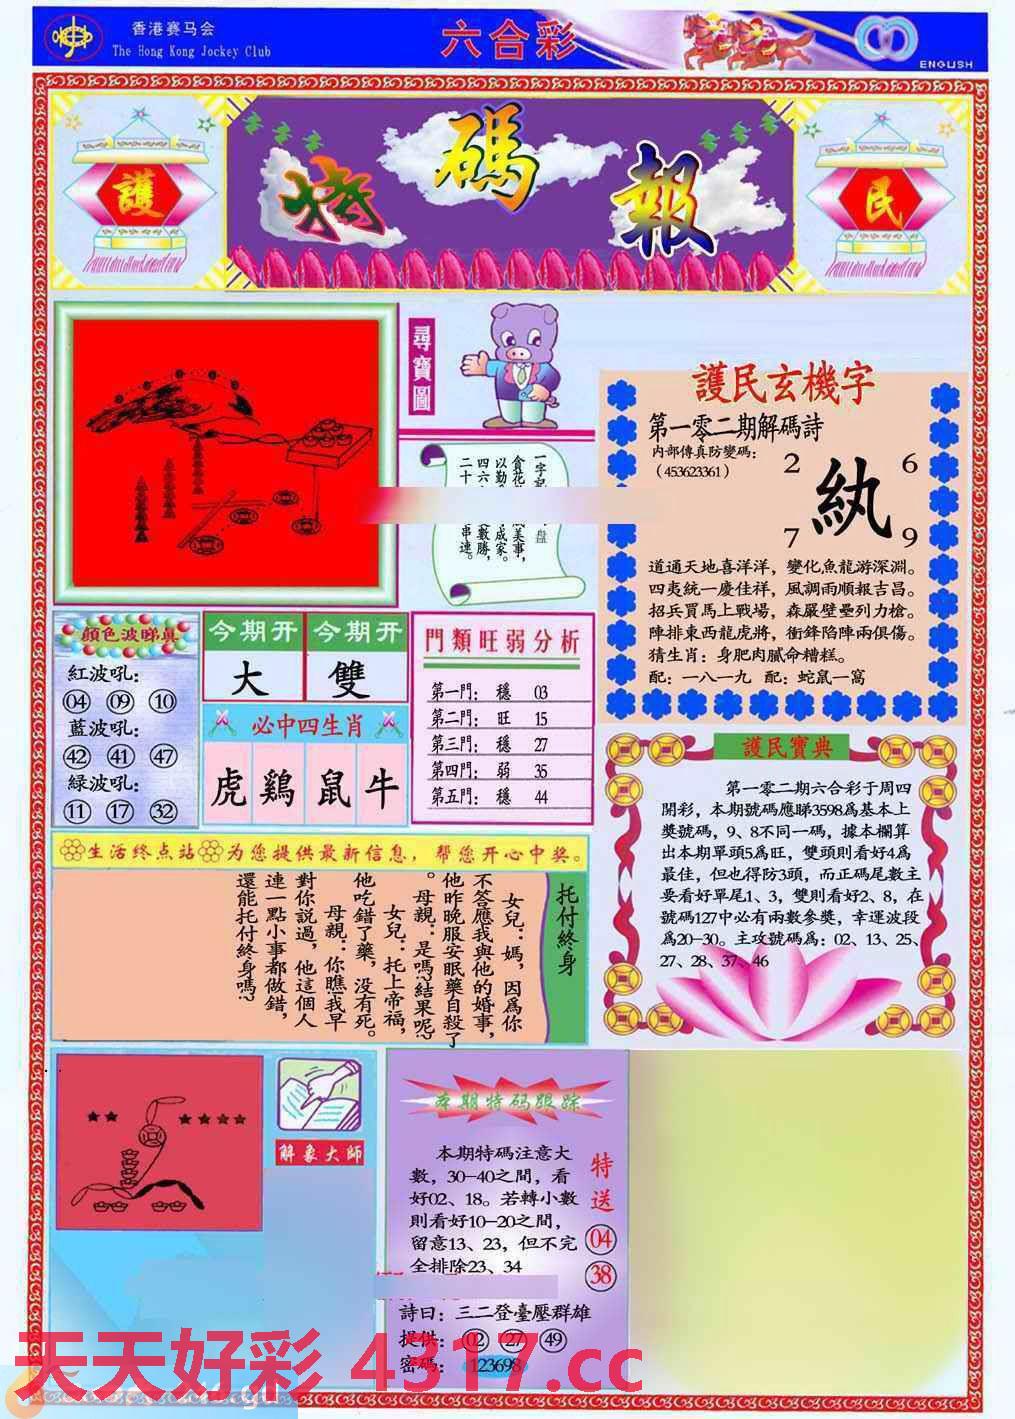 香港赛马会
The Hong Kong Jockey Club
六合彩
ENGLISH
護
特碼報
民
尋寶圖
一字記
盤
貪花
美事，
以勤
成家。
四六
數勝，
二十
串連。
護民玄機字
第一零二期解碼詩
内部傳真防變碼：
（453623361）
2
6
紈
7
9
道通天地喜洋洋，變化魚龍游深淵。
四夷統一慶佳祥，風調雨順報吉昌。
招兵買馬上戰場，森嚴壁壘列力槍。
陣排東西龍虎將，衝鋒陷陣兩俱傷。
猜生肖：身肥肉膩命糟糕。
配：一八一九 配：蛇鼠一窩
顔色波睇真
紅波吼：
04 09 10
藍波吼：
42 41 47
緑波吼：
11 17 32
今期开 今期开
大 雙
必中四生肖
虎 鷄 鼠 牛
門類旺弱分析
第一門： 穩 03
第二門： 旺 15
第三門： 穩 27
第四門： 弱 35
第五門： 穩 44
護民寶典
第一零二期六合彩于周四
開彩，本期號碼應睇3598爲基本上
獎號碼，9、8不同一碼，據本欄算
出本期單頭5爲旺，雙頭則看好4爲
最佳，但也得防3頭，而正碼尾數主
要看好單尾1、3，雙則看好2、8，在
號碼127中必有兩數參獎，幸運波段
爲20-30。主攻號碼爲：02、13、25、
27、28、37、46
生活终点站 为您提供最新信息，帮您开心中奖。
托付終身
女兒：媽，因爲你
不答應我與他的婚事，
他昨晚服安眠藥自殺了
。母親：是嗎？結果呢？
女兒：托上帝福，
他吃錯了藥，没有死。
母親：你瞧！我早
對你説過，他這個人
連一點小事都做錯，
還能托付終身嗎？
解象大師
本期特码跟踪
本期特碼注意大
數，30-40之間，看
好02、18。若轉小數
則看好10-20之間，
留意13、23，但不完
全排除23、34
特送
04
38
詩曰：三二登臺壓群雄
提供：02 27 49
密碼：123698
天天好彩 4317.cc